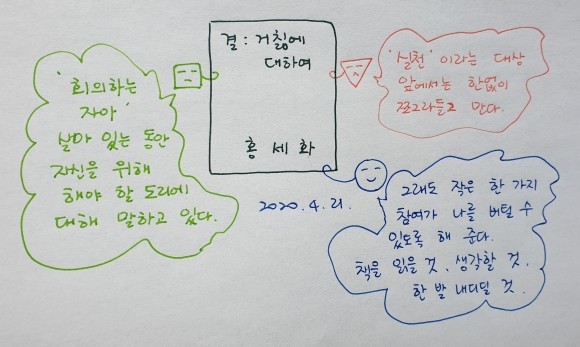 결 : 거칢에
대하여
홍 세 화
'회의하는
자아'
살아 있는 동안
자신을 위해
해야 할 도리에
대해 말하고 있다.
'실천'이라는 대상
앞에서는 한없이
쪼그라들고 만다.
2020.4.21.
그래도 작은 한 가지
참여가 나를 버틸 수
있도록 해 준다.
책을 읽을 것, 생각할 것,
한 발 내디딜 것.